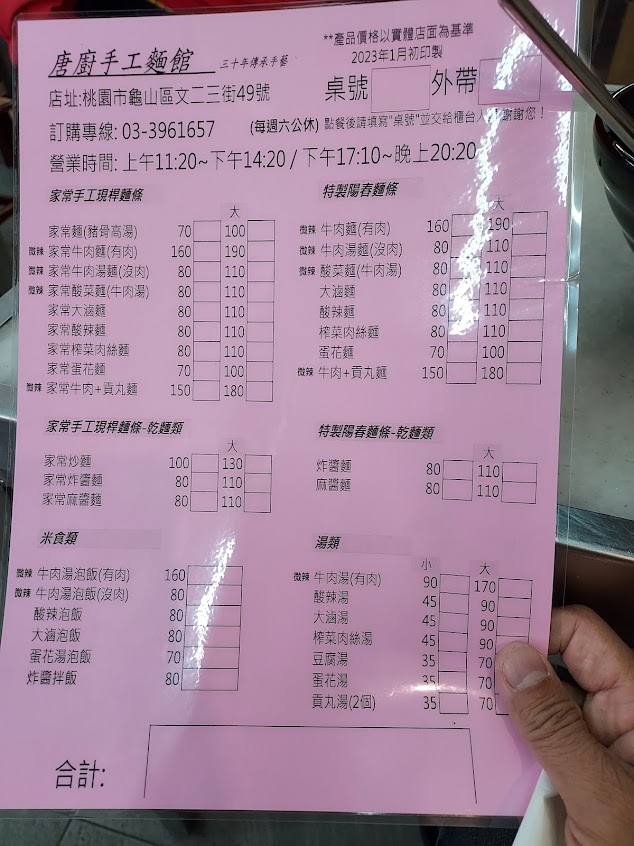 唐廚手工麵館 三十年傳承手藝
**產品價格以實體店面為基準
2023年1月初印製
店址:桃園市龜山區文二三街49號
桌號 外帶
訂購專線: 03-3961657 (每週六公休)
點餐後請填寫"桌號"並交給櫃台人 謝謝您！
營業時間: 上午11:20~下午14:20 / 下午17:10~晚上20:20
家常手工現桿麵條
大
家常麵(豬骨高湯) 70 100
微辣 家常牛肉麵(有肉) 160 190
微辣 家常牛肉湯麵(沒肉) 80 110
微辣 家常酸菜麵(牛肉湯) 80 110
家常大滷麵 80 110
家常酸辣麵 80 110
家常榨菜肉絲麵 80 110
家常蛋花麵 70 100
微辣 家常牛肉+貢丸麵 150 180
特製陽春麵條
大
微辣 牛肉麵(有肉) 160 190
微辣 牛肉湯麵(沒肉) 80 110
微辣 酸菜麵(牛肉湯) 80 110
大滷麵 80 110
酸辣麵 80 110
榨菜肉絲麵 80 110
蛋花麵 70 100
微辣 牛肉+貢丸麵 150 180
家常手工現桿麵條-乾麵類
大
家常炒麵 100 130
家常炸醬麵 80 110
家常麻醬麵 80 110
特製陽春麵條-乾麵類
大
炸醬麵 80 110
麻醬麵 80 110
米食類
微辣 牛肉湯泡飯(有肉) 160
微辣 牛肉湯泡飯(沒肉) 80
酸辣泡飯 80
大滷泡飯 80
蛋花湯泡飯 70
炸醬拌飯 80
湯類
小 大
微辣 牛肉湯(有肉) 90 170
酸辣湯 45 90
大滷湯 45 90
榨菜肉絲湯 45 90
豆腐湯 35 70
蛋花湯 35 70
貢丸湯(2個) 35 70
合計: